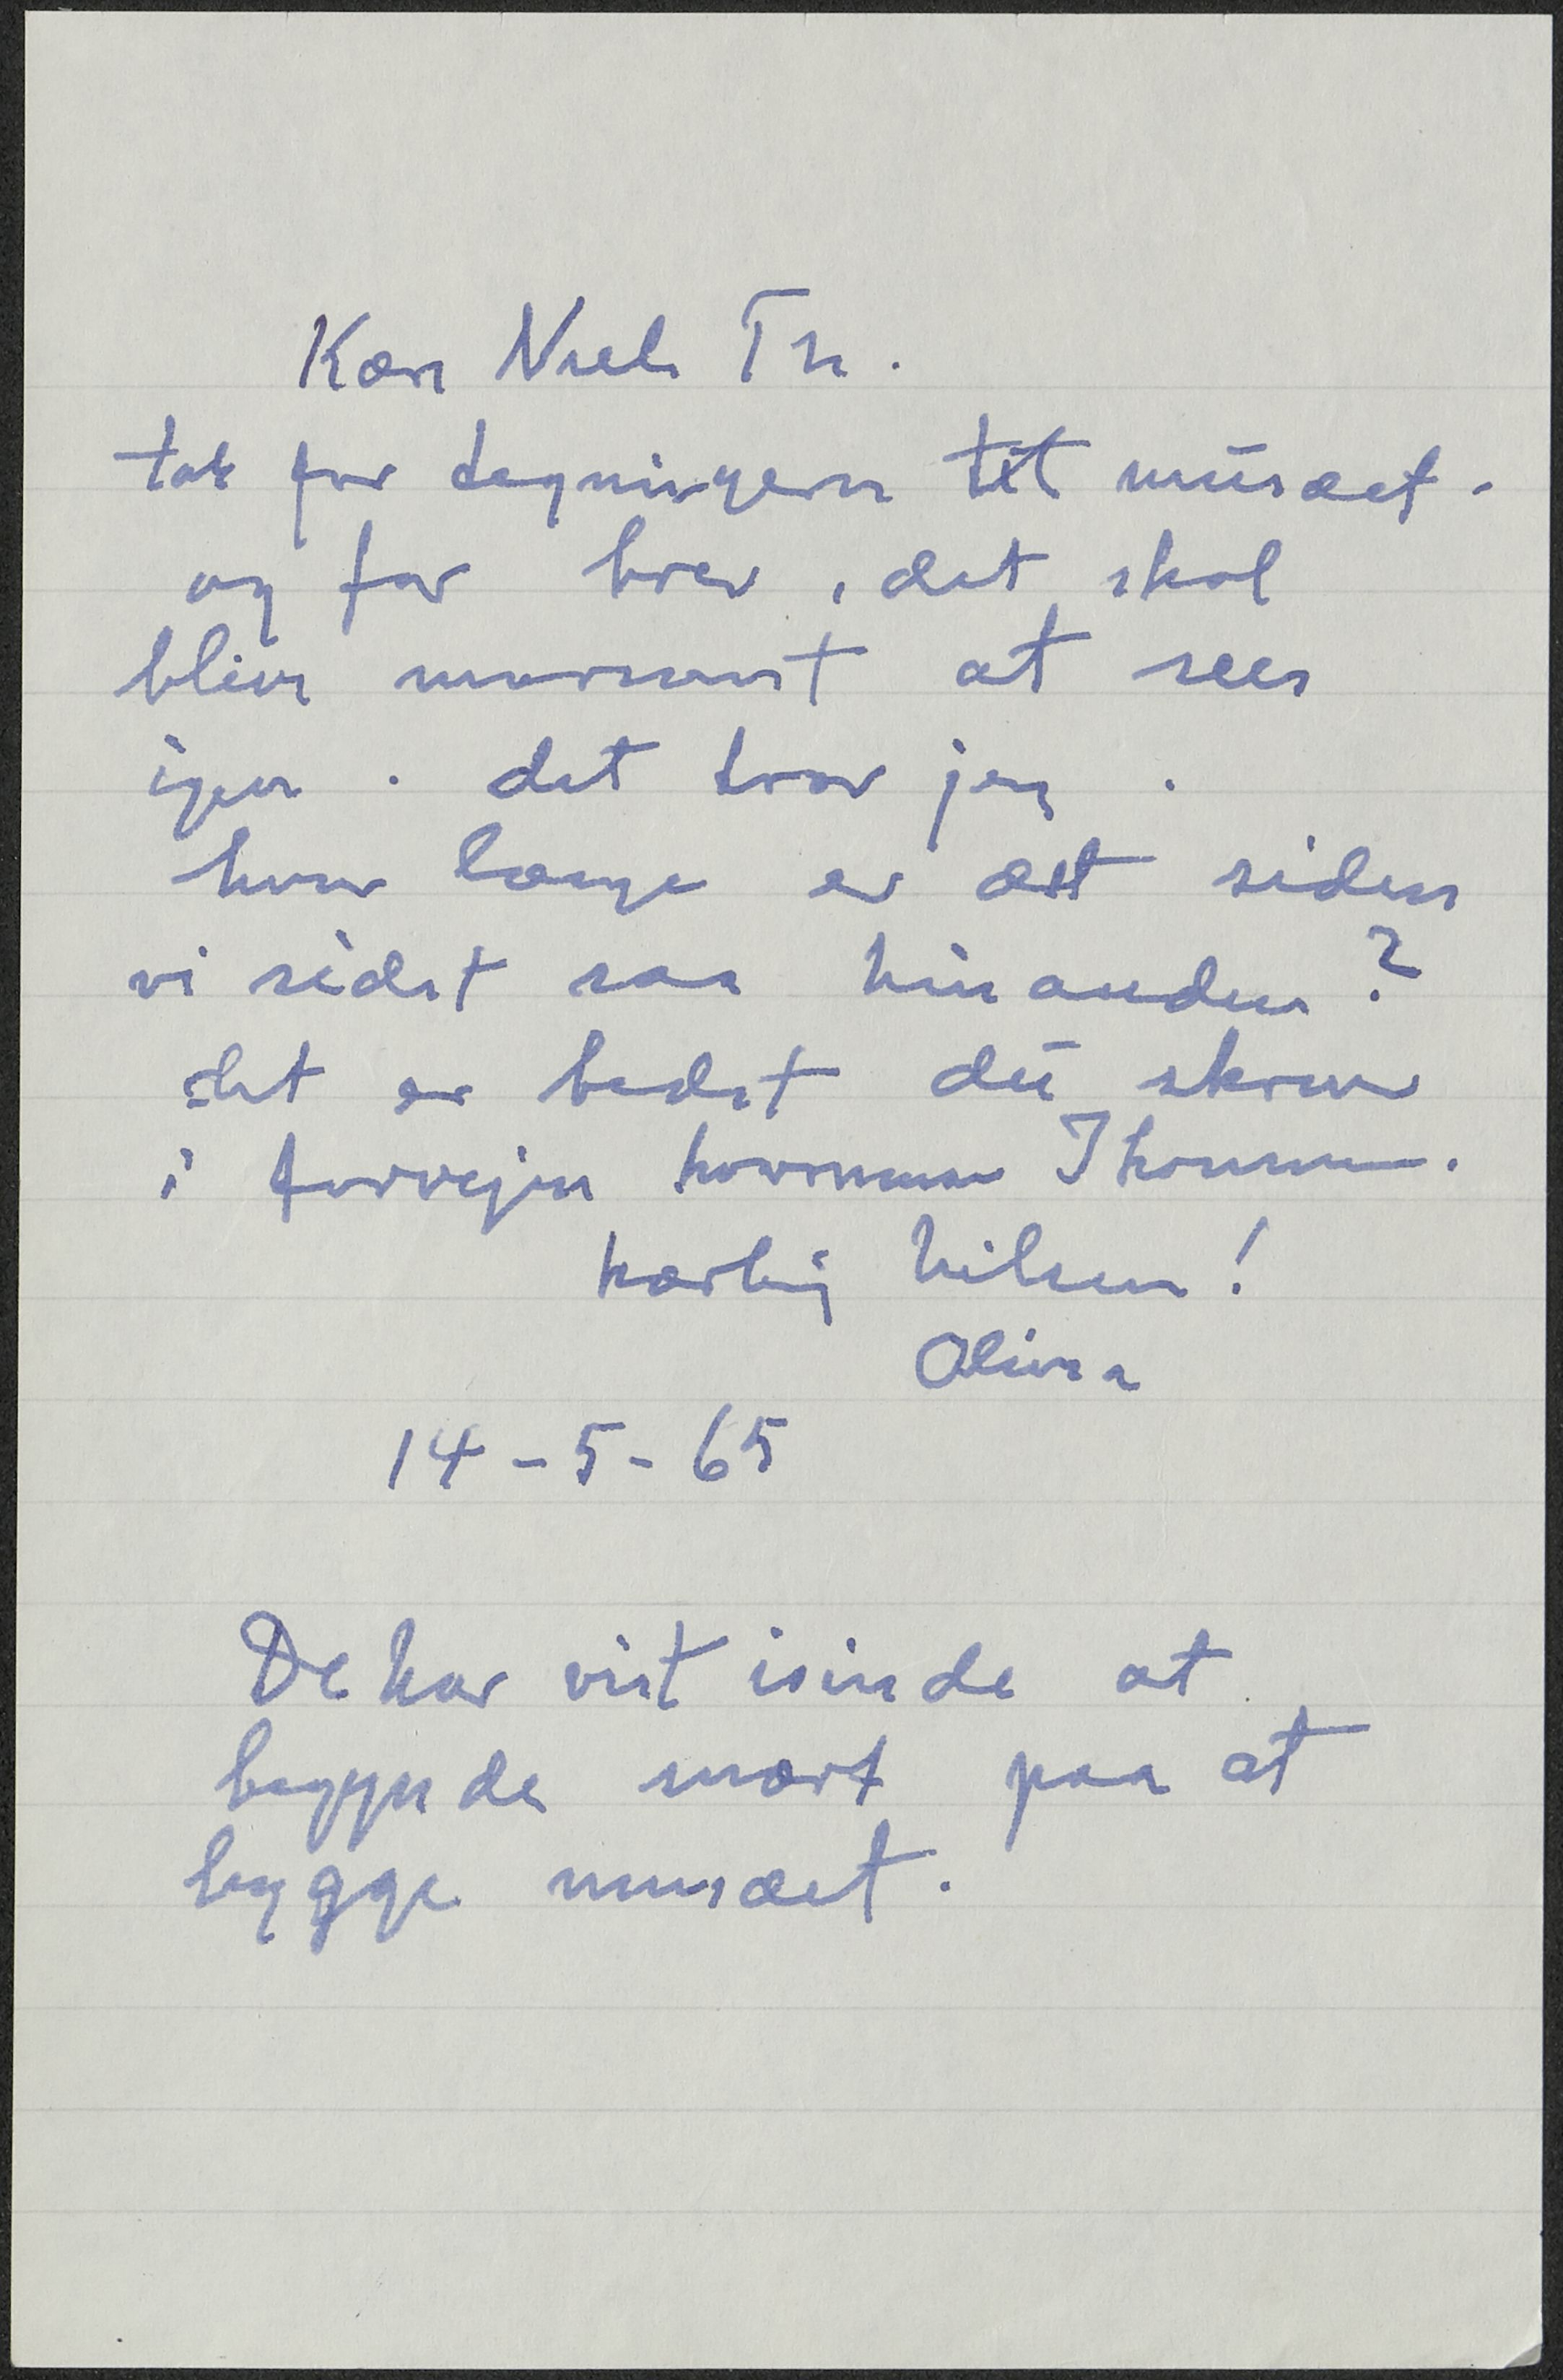 Kære Niels Th.
tak for tegningerne til musæet.
og for brev, det skal
blive morsomt at sees
igen. det tror jeg.
hvor længe er det siden
vi sidst saa hinanden?
det er bedst du skriver
i forvejen hvornaar I kommer.
kærlig hilsen!
Olivia
14-5-65
De har vist isinde at
begynde snart paa at
bygge musæet.